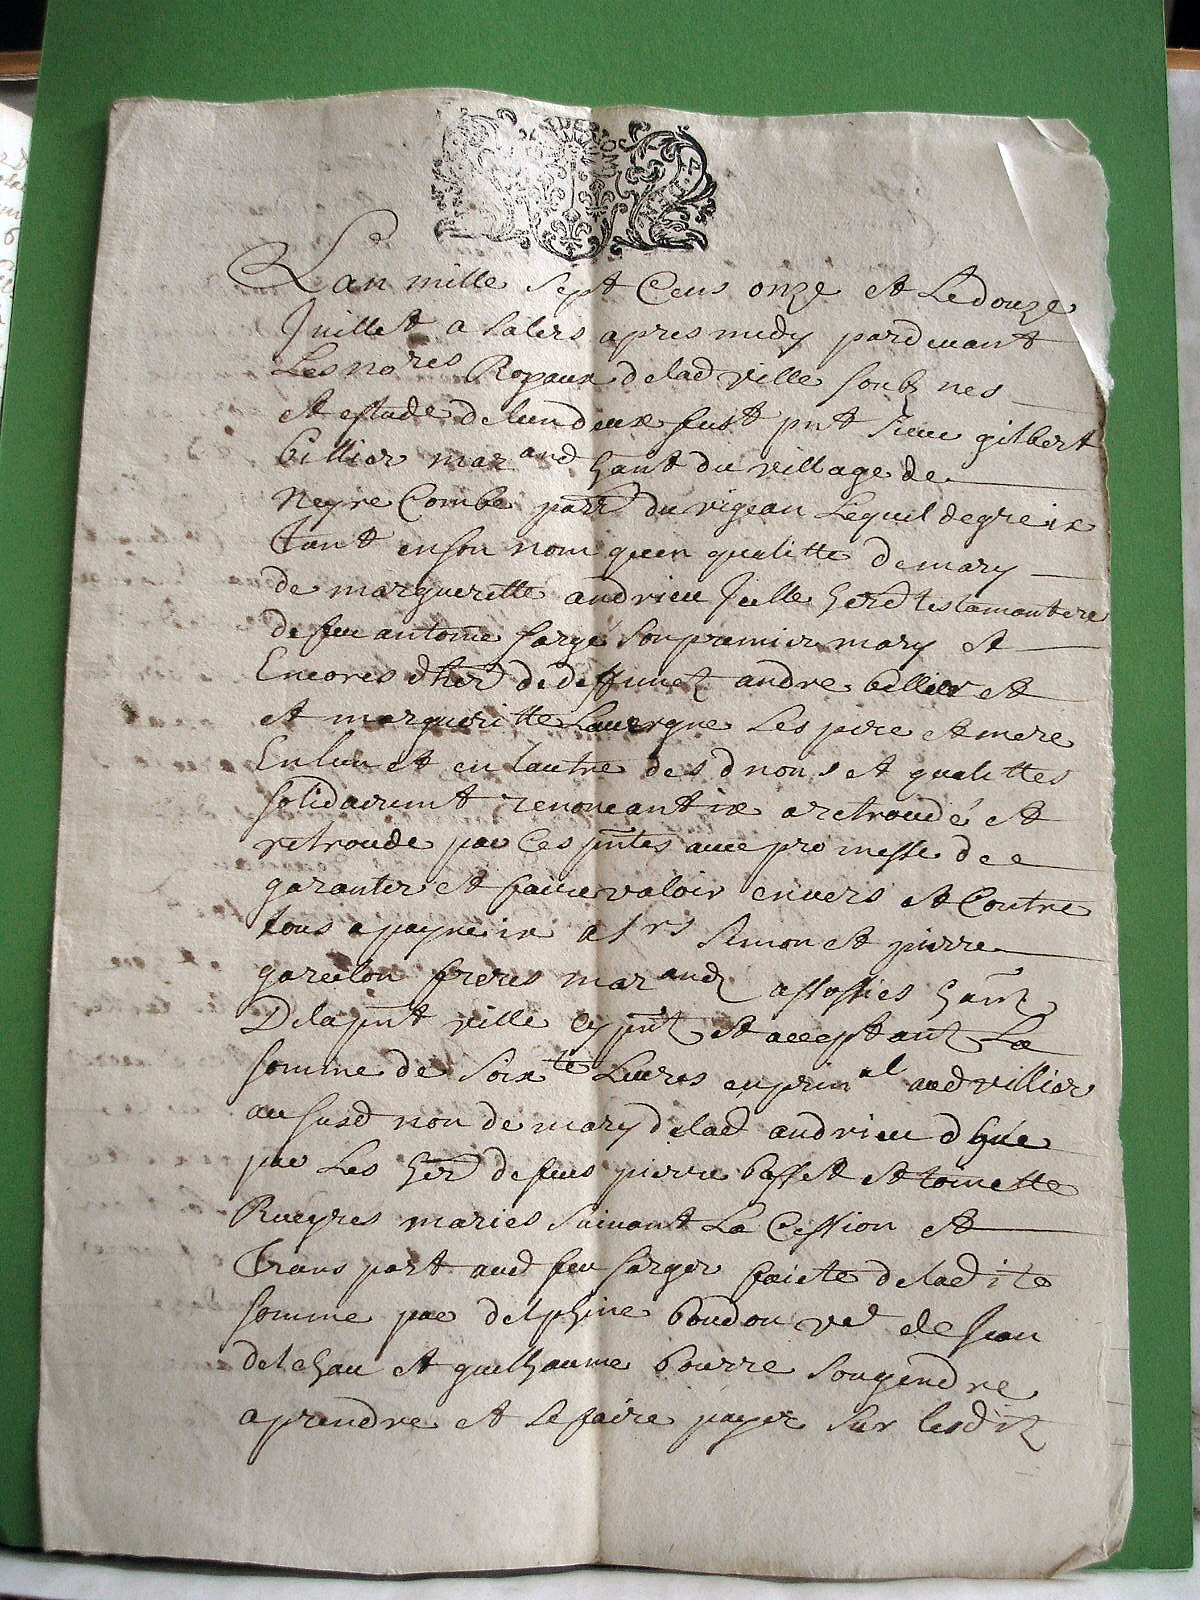 Lan mille sept Cens onze et Le douze
Juillet a Salers apres midy pardevant
Les no res Royaux de lad ville soubz nes
et estude de lun deux fust pnt gilbert
billier mar and hant du village de
Neyre Combe parr du vigean Lequel de gre ix
Tant en son nom quen qualitte de mary
de margueritte andrieu Jcelle herd testamantere
de feu antoine sarge son premier mary et
Encores dher de deffunct andre billier et
et margueritte Lavergne Les pere et mere
En lun et en lautre des d nons et qualittes
solidairemt renoncant ix a retroude et
retroude par Ces pntes avec promesse de
garanter et faire valoir envers et Contre
tous a payne ix a srs Simon et pierre
garcelon freres mar andz assossies hant
De la pnt ville Cy pnt et acceptant La
somme de Soix te Livres en prin al aud villier
au susd non de mary de lad andrieu dhue
par Les her de feus pierre basset et toinette
Rueyres maries suivant La Cession et
Trans port aud feu sarger faicte de ladite
somme par delphine boudon ve de Jean
delchau et guilhaume bourre son gendre
a prendre et se faire payer sur lesditz